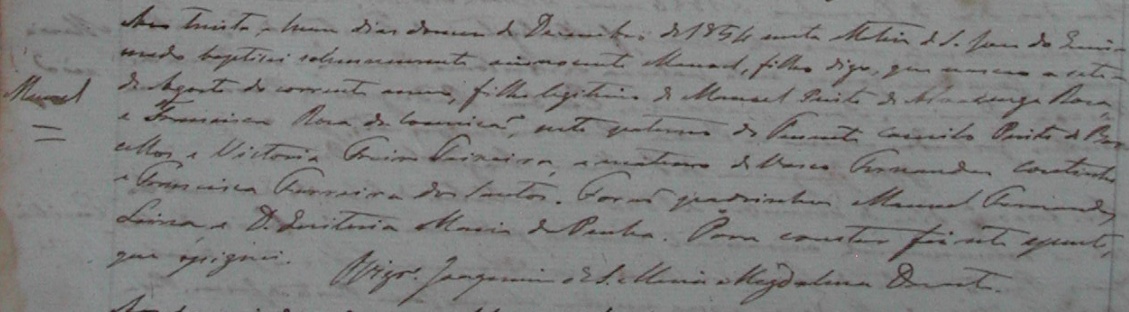 Aos trinta e hum dias do mez de Dezembro de 1854 nesta Matriz de S. João do
baptizei solemnemente o innocente Manoel, filho digo, que nasceu a sete
Manoel
de Agosto do corrente anno, filho legitimo de Manoel Pinto de Rosa
e Francisca Rosa da Conceicaõ, neto paterno de Camilo Pinto de
e Victoria Teixeira, e materno de Vasco Fernandes Coutinho
e Francisca Ferreira dos Santos. Foraõ padrinhos Manoel Fernandes
e D. Quiteria Maria da Penha. Para constar fiz este
que assignei. O Vigrº. Joaquim de S. Maria Magdalena Duarte.